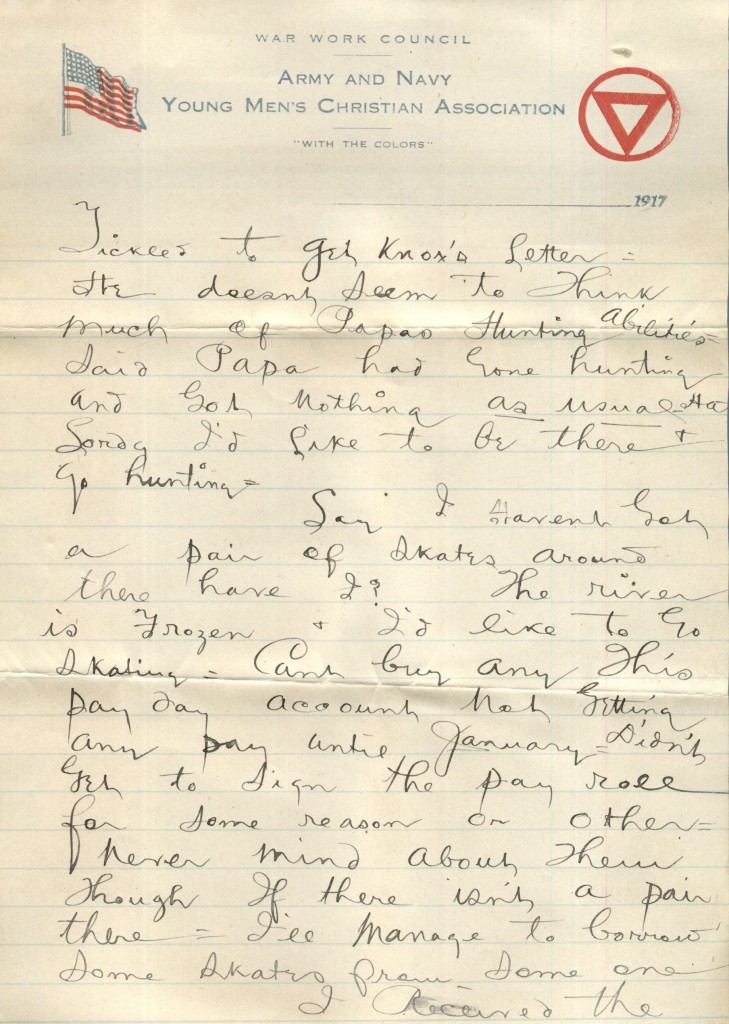 WAR WORK COUNCIL
ARMY AND NAVY
YOUNG MEN'S CHRISTIAN ASSOCIATION
"WITH THE COLORS"
1917
Tickled to get Knox's Letter =
He doesnt seem to think
much of Papas Hunting Abilities =
Said Papa had gone hunting
and Got Nothing as usual = Ha
I'd Like to be there +
Go hunting =
Say I Havent Got
a pair of skates around
there have I? The river
is Frozen + I'd like to Go
skating = Cant buy any this
pay day account Not Getting
any pay until January = Didn't
Get to sign the pay roll
for some reason or other =
Never mind about them
though If there isn't a pair
there = I'll Manage to borrow
some skates from some one
I Received the